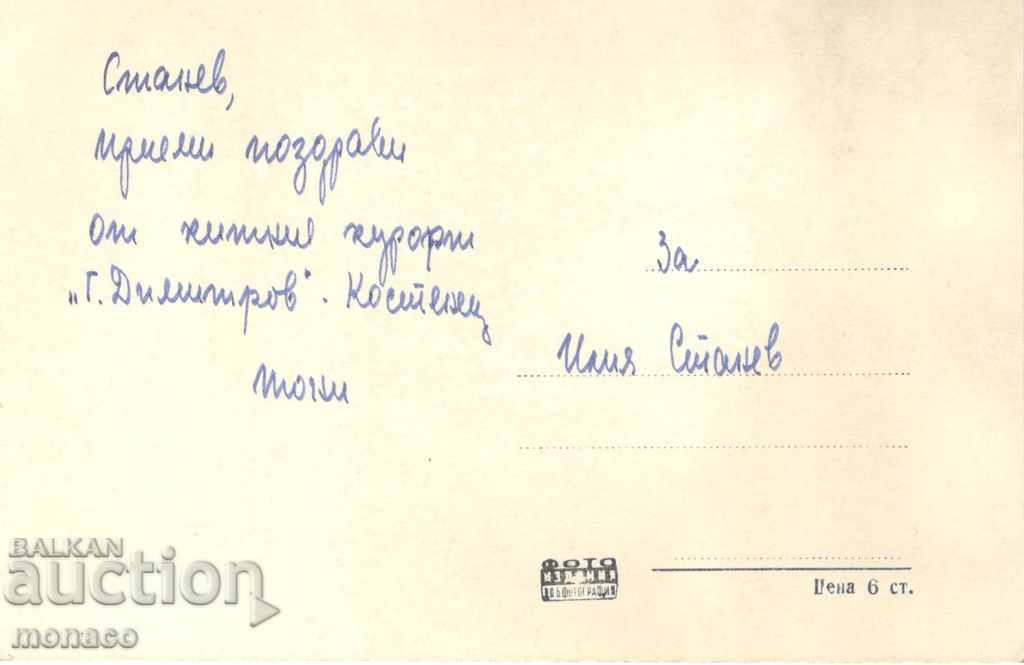 Станев,
приеми поздрави
от хижния курорт
„Г. Димитров" - Костенец
Точи
За
Илия Станев
ФОТО
ИЗДАНИЯ
Цена 6 ст.
BALKAN
auction
monaco